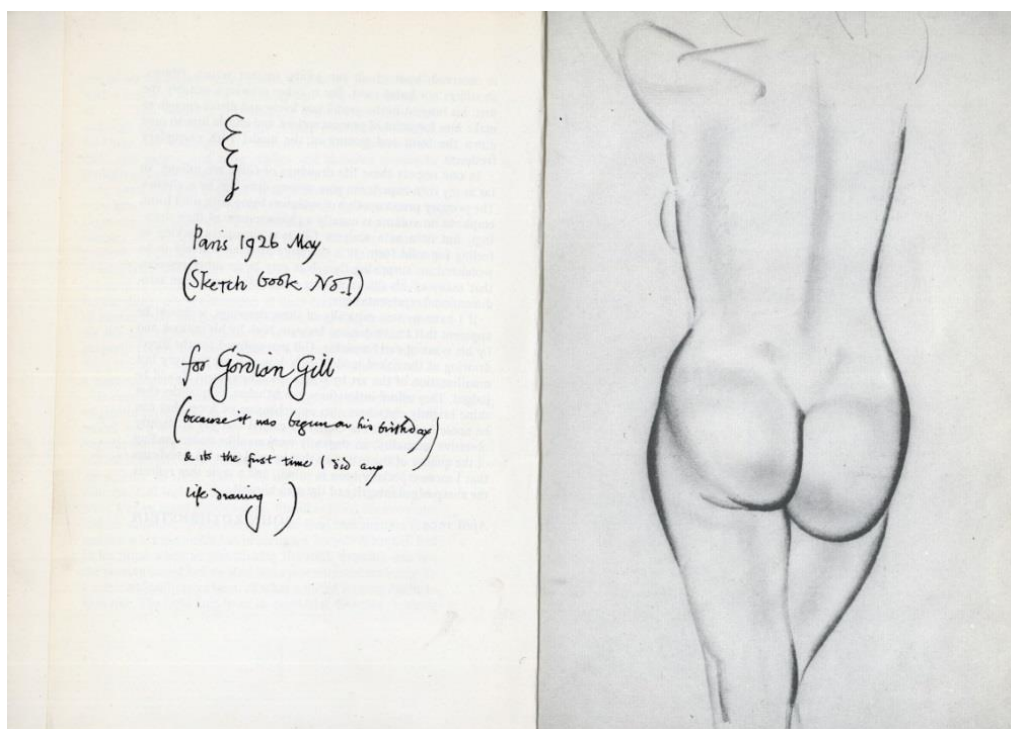 Paris 1926 May
(Sketch book No. I)
for Gordian Gill
(because it was begun on his birthday)
& its the first time I did any
life drawing.)